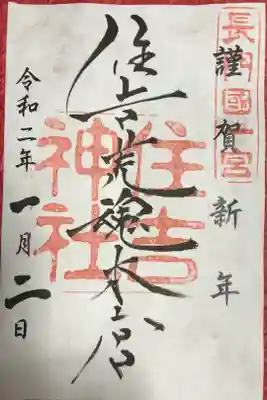 長門國一宮
謹賀新年
住吉荒魂本宮
住吉
神社
令和二年
一月二日